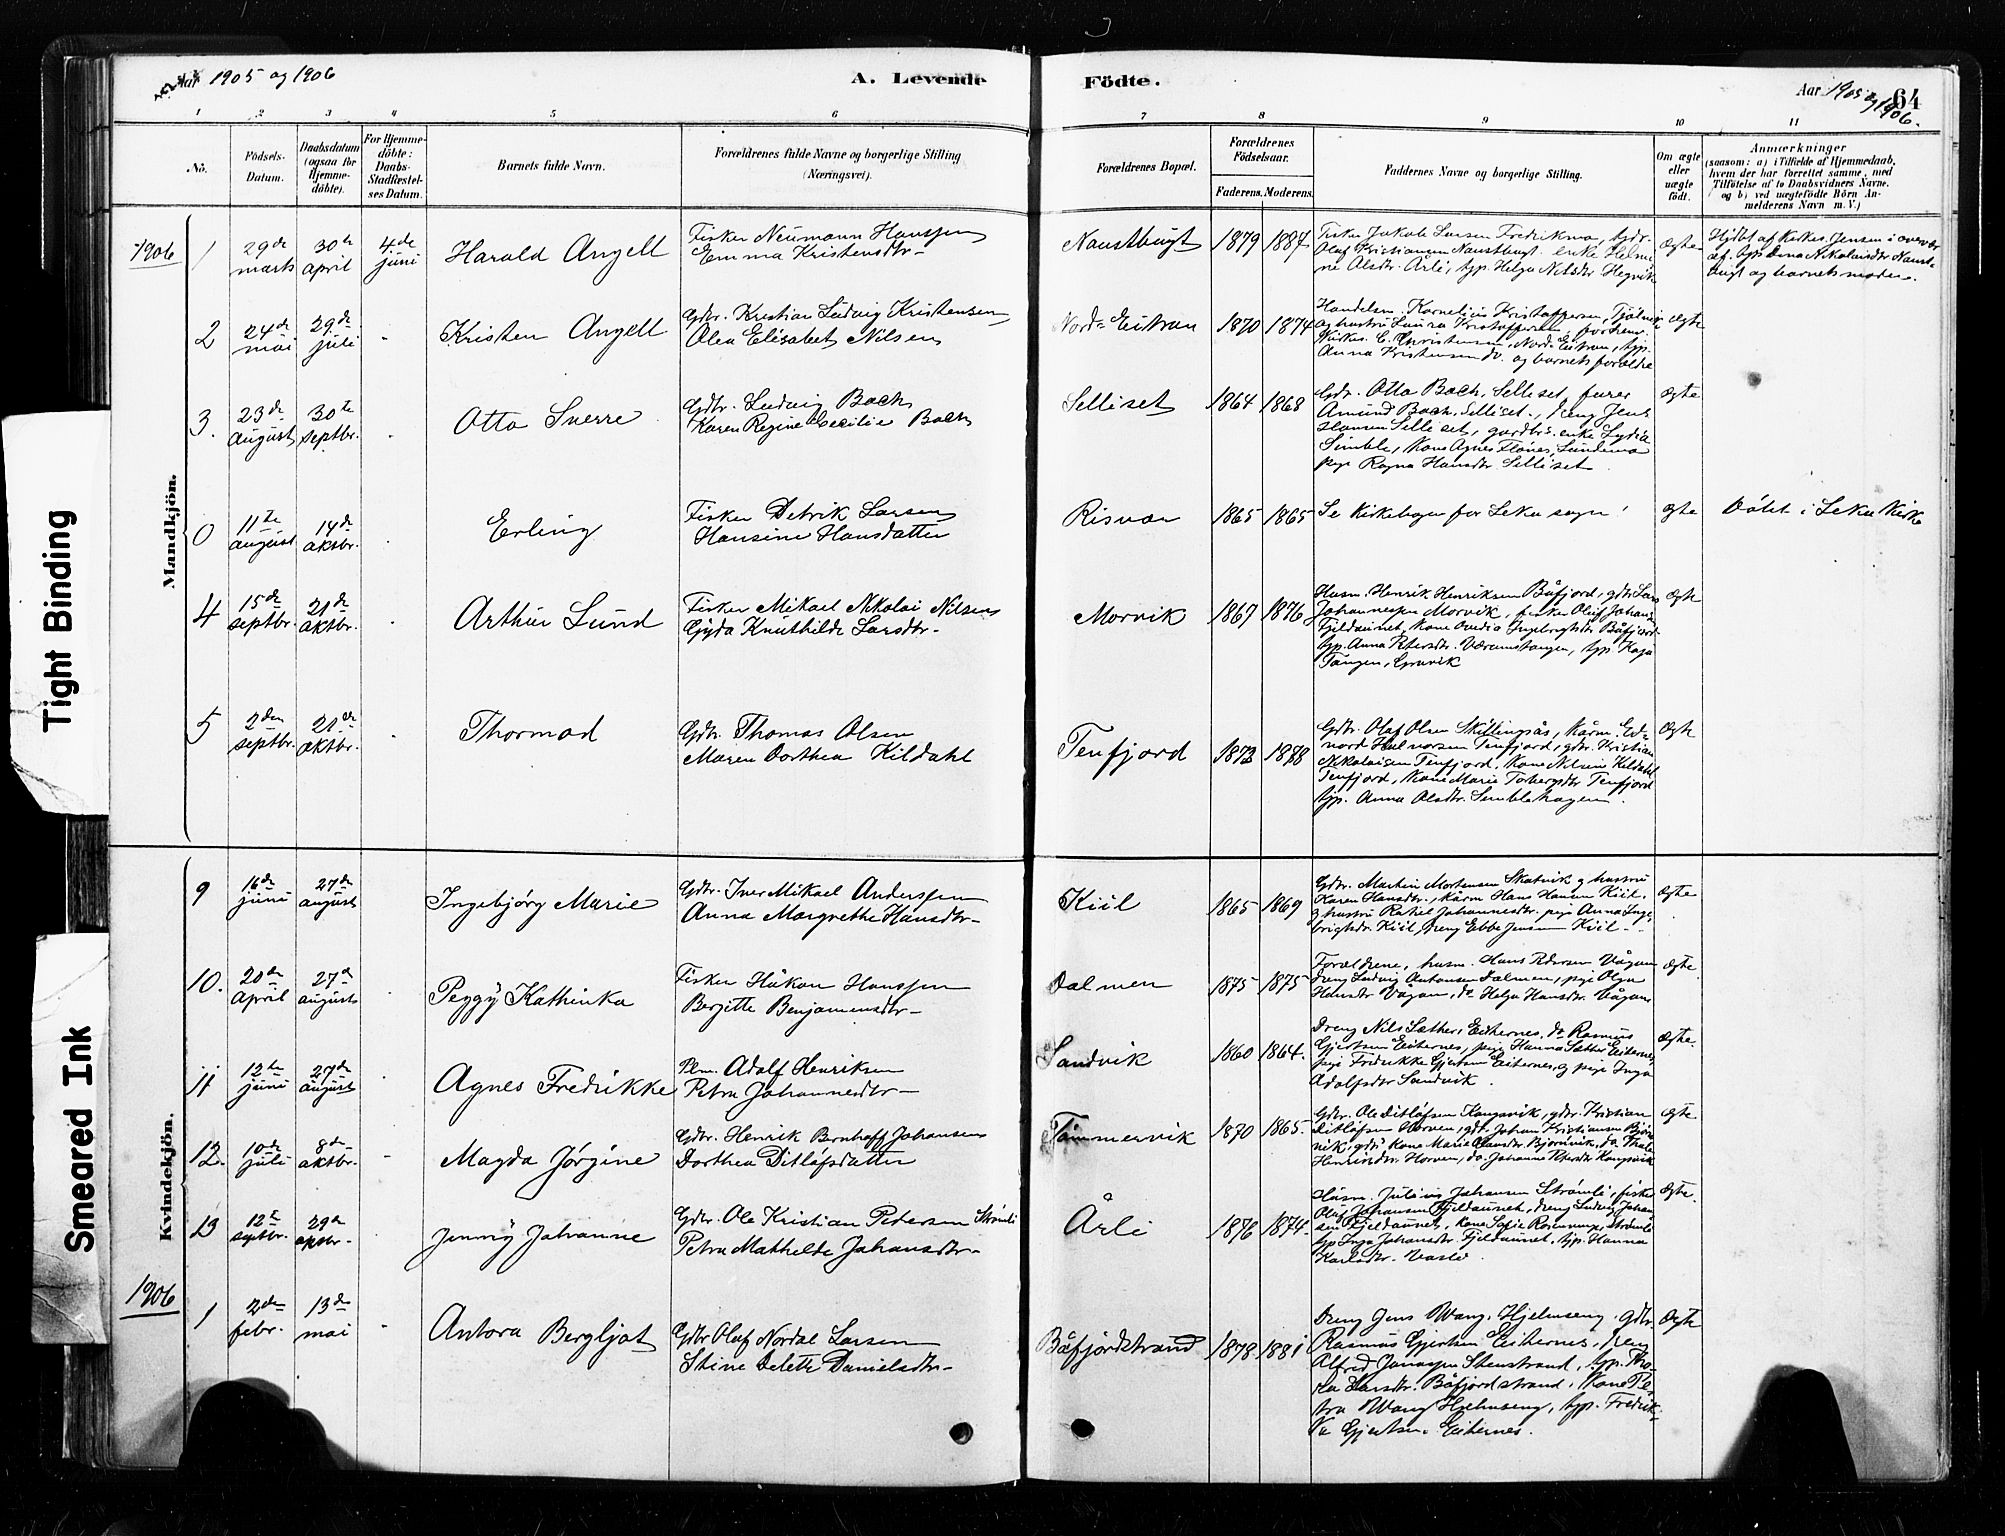 Aar 1905 og 1906
A. Levende
Födte.
Aar 1905 og 1906.
64
1 2 3 4 5 6 7 8 9 10 11
No.
Födsels-
Datum.
Daabsdatum
(ogsaa for
Hjemme-
döbte).
For Hjemme-
döbte:
Daabs-
Stadfæstel-
ses Datum.
Barnets fulde Navn.
Forældrenes fulde Navne og borgerlige Stilling
(Næringsvei).
Forældrenes Bopæl.
Forældrenes
Födselsaar.
Faderens. Moderens.
Faddernes Navne og borgerlige Stilling.
Om ægte
eller
uægte
födt.
Anmærkninger
(saasom: a) i Tilfælde af Hjemmedaab,
hvem der har forrettet samme, med
Tilföielse af to Daabsvidners Navne.
og b) ved uægtefödte Börn An-
melderens Navn m. V.)
Tight Binding
Smeared Ink
Mandkjön.
Kvindekjön.
1906
1
29de
marts
30te
april
4de
juni
Harald Angell
Fisker Neumann Hanssen
Emma Kristensdtr.
Naustbugt
1879 1887
Fisker Jakob Larsen Fredrikmo, Gdr.
Olaf Kristiansen Naustbugt, enke Helmi-
ne Olsdtr. Årli, tjp. Helga Nilsdtr. Hegvik
ægte
Hjdbt af Kirkes. Jensen i overvær
af tjp. Dina Nikolaisdtr. Naust-
bugt og barnets moder.
2
24de
mai
29de
juli
Kristen Angell
Gdbr. Kristian Ludvig Kristensen
Olea Elisabet Nilsen
Nord-Eitran
1870 1874
Handelsm. Kornelius Kristoffersen,
og hustru Laura Kristoffersen, forhenv.
Kirkes. C. Christensen, Nord-Eitran, tjp.
Anna Kristensen do. og barnets forældre
ægte
3.
23de
august
30te
septbr.
Otto Sverre
Gdbr. Ludvig Bach
Karen Regine Cecilie Bach
Selliset
1864 1868
Gdr. Otto Bach, Selliset, furer
Amund Bach, Selliset, dreng Jens
Hansen Selliset, gardbr's enke Lydia
Simble, Kone Agnes Flönes,
pige Ragna Hansdtr. Selliset
ægte
0
11te
august
14de
oktbr.
Erling
Fisker Detrik Larsen
Hansine Hansdatter
Risvær
1865 1865
Se Kirkebogen for Leka sogn!
ægte
Döbt i Leka Kirke
4
15de
septbr.
21de
oktbr.
Arthur Lund
Fisker Mikael Nikolai Nilsen
Gyda Knuthilde Larsdtr.
Morvik
1867 1876
Husm. Henrik Henriksen Båfjord, gdbr Lars
Johannessen Morvik, fisker Oluf Johans.
Fjeldaunet, Kone Ovedia Ingebrigtsdtr Båfjord
tjp. Anna Petersdtr. Værumstangen, tjp. Kaja
Tangen, Gravik
ægte
5
2den
septbr.
21de
oktbr.
Thormod
Gdbr. Thomas Olsen
Maren Dorthea Kildahl
Tenfjord
1873 1878
Gdr. Olaf Olsen Skillingsås, Kårm. Ed-
vard Halvorsen Tenfjord, gdr. Kristian
Nikolaisen Tenfjord, Kone Nilsine Kildahl
Tenfjord, Kone Marie Torbergsdtr Tenfjord
tjp. Anna Olsdtr. Simblehagen.
ægte
9
16de
juni
27de
august
Ingebjörg Marie
Gdbr. Iver Mikael Anderssen
Anna Margrethe Hansdtr.
Kiil
1865 1869
Gdbr. Martin Mortensen Skotvik og hustru
Karen Hansdtr., kårm Hans Hansen Kiil,
og hustru Rakel Johannesdtr. pige Anna Inge-
brigtsdr. Kiil, dreng Ebbe Jensen Kiil.
ægte
10.
20de
april
27de
august
Peggy Kathinka
Fisker Håkon Hanssen
Bergitte Benjamensdtr.
Dalmen
1875 1875
Forældrene, husm. Hans Pedersen Vågan
dreng Ludvig Antonsen Dalmen, pige Olga
Hansdtr Vågan, do Helga Hansdtr. Vågan
ægte
11
12te
juni
27de
august
Agnes Fredrikke
Plm. Adolf Henriksen
Petra Johannesdtr.
Sandvik
1860 1864.
Dreng Nils Sæther Eiternes, do Rasmus
Gjertsen Eiternes, pige Hanna Sæther Eiternes
pige Fredrikke Gjertsen Eiternes, og pige Inga
Adolfsdtr Sandvik.
ægte.
12.
10de
juli
8de
oktbr.
Magda Jørgine
Gdbr. Henrik Bernhoff Johansen
Dorthea Ditlefsdatter
Tømmervik
1870 1865.
Gdbr. Ole Ditlefsen Kongsvik, gdbr. Kristian
Ditlefsen Horven, gdr. Johan Kristiansen Bjørn-
vik, gdbr's Kone Marie Olausdtr. Bjørnvik, do
Henriksdtr. Horven, do. Johanne Petersdtr Kongsvik
ægte
13
12te
septbr.
29de
oktbr.
Jenny Johanne
Gdbr. Ole Kristian Petersen Strömli
Petra Mathilde Johansdtr.
Årli
1876 1874
Husm. Julius Johansen Strømli, fisker
Oluf Johansen Fjeldaunet, dreng Ludvig Johan-
sen Fjeldaunet, Kone Sofie Strömli
tjp Inga Johansdtr. Fjeldaunet, tjp. Hanna
Karlsdtr.
ægte.
1906
1
2den
febr.
13de
mai
Antora Bergljot
Gdbr Olaf Nordal Larsen
Stine Delete Danielsdtr.
Båfjordstrand
1878 1881
Dreng Jens Wang, Hjelmseng, gdbr
Rasmus Gjertsen Eiternes, dreng
Alfred Jonassen Stenstrand, tjp. Tho-
ra Larsdtr. Båfjordstrand, Kone Pe-
tra Wang Hjelmseng, tjp. Fredrik-
ke Gjertsen Eiternes.
ægte